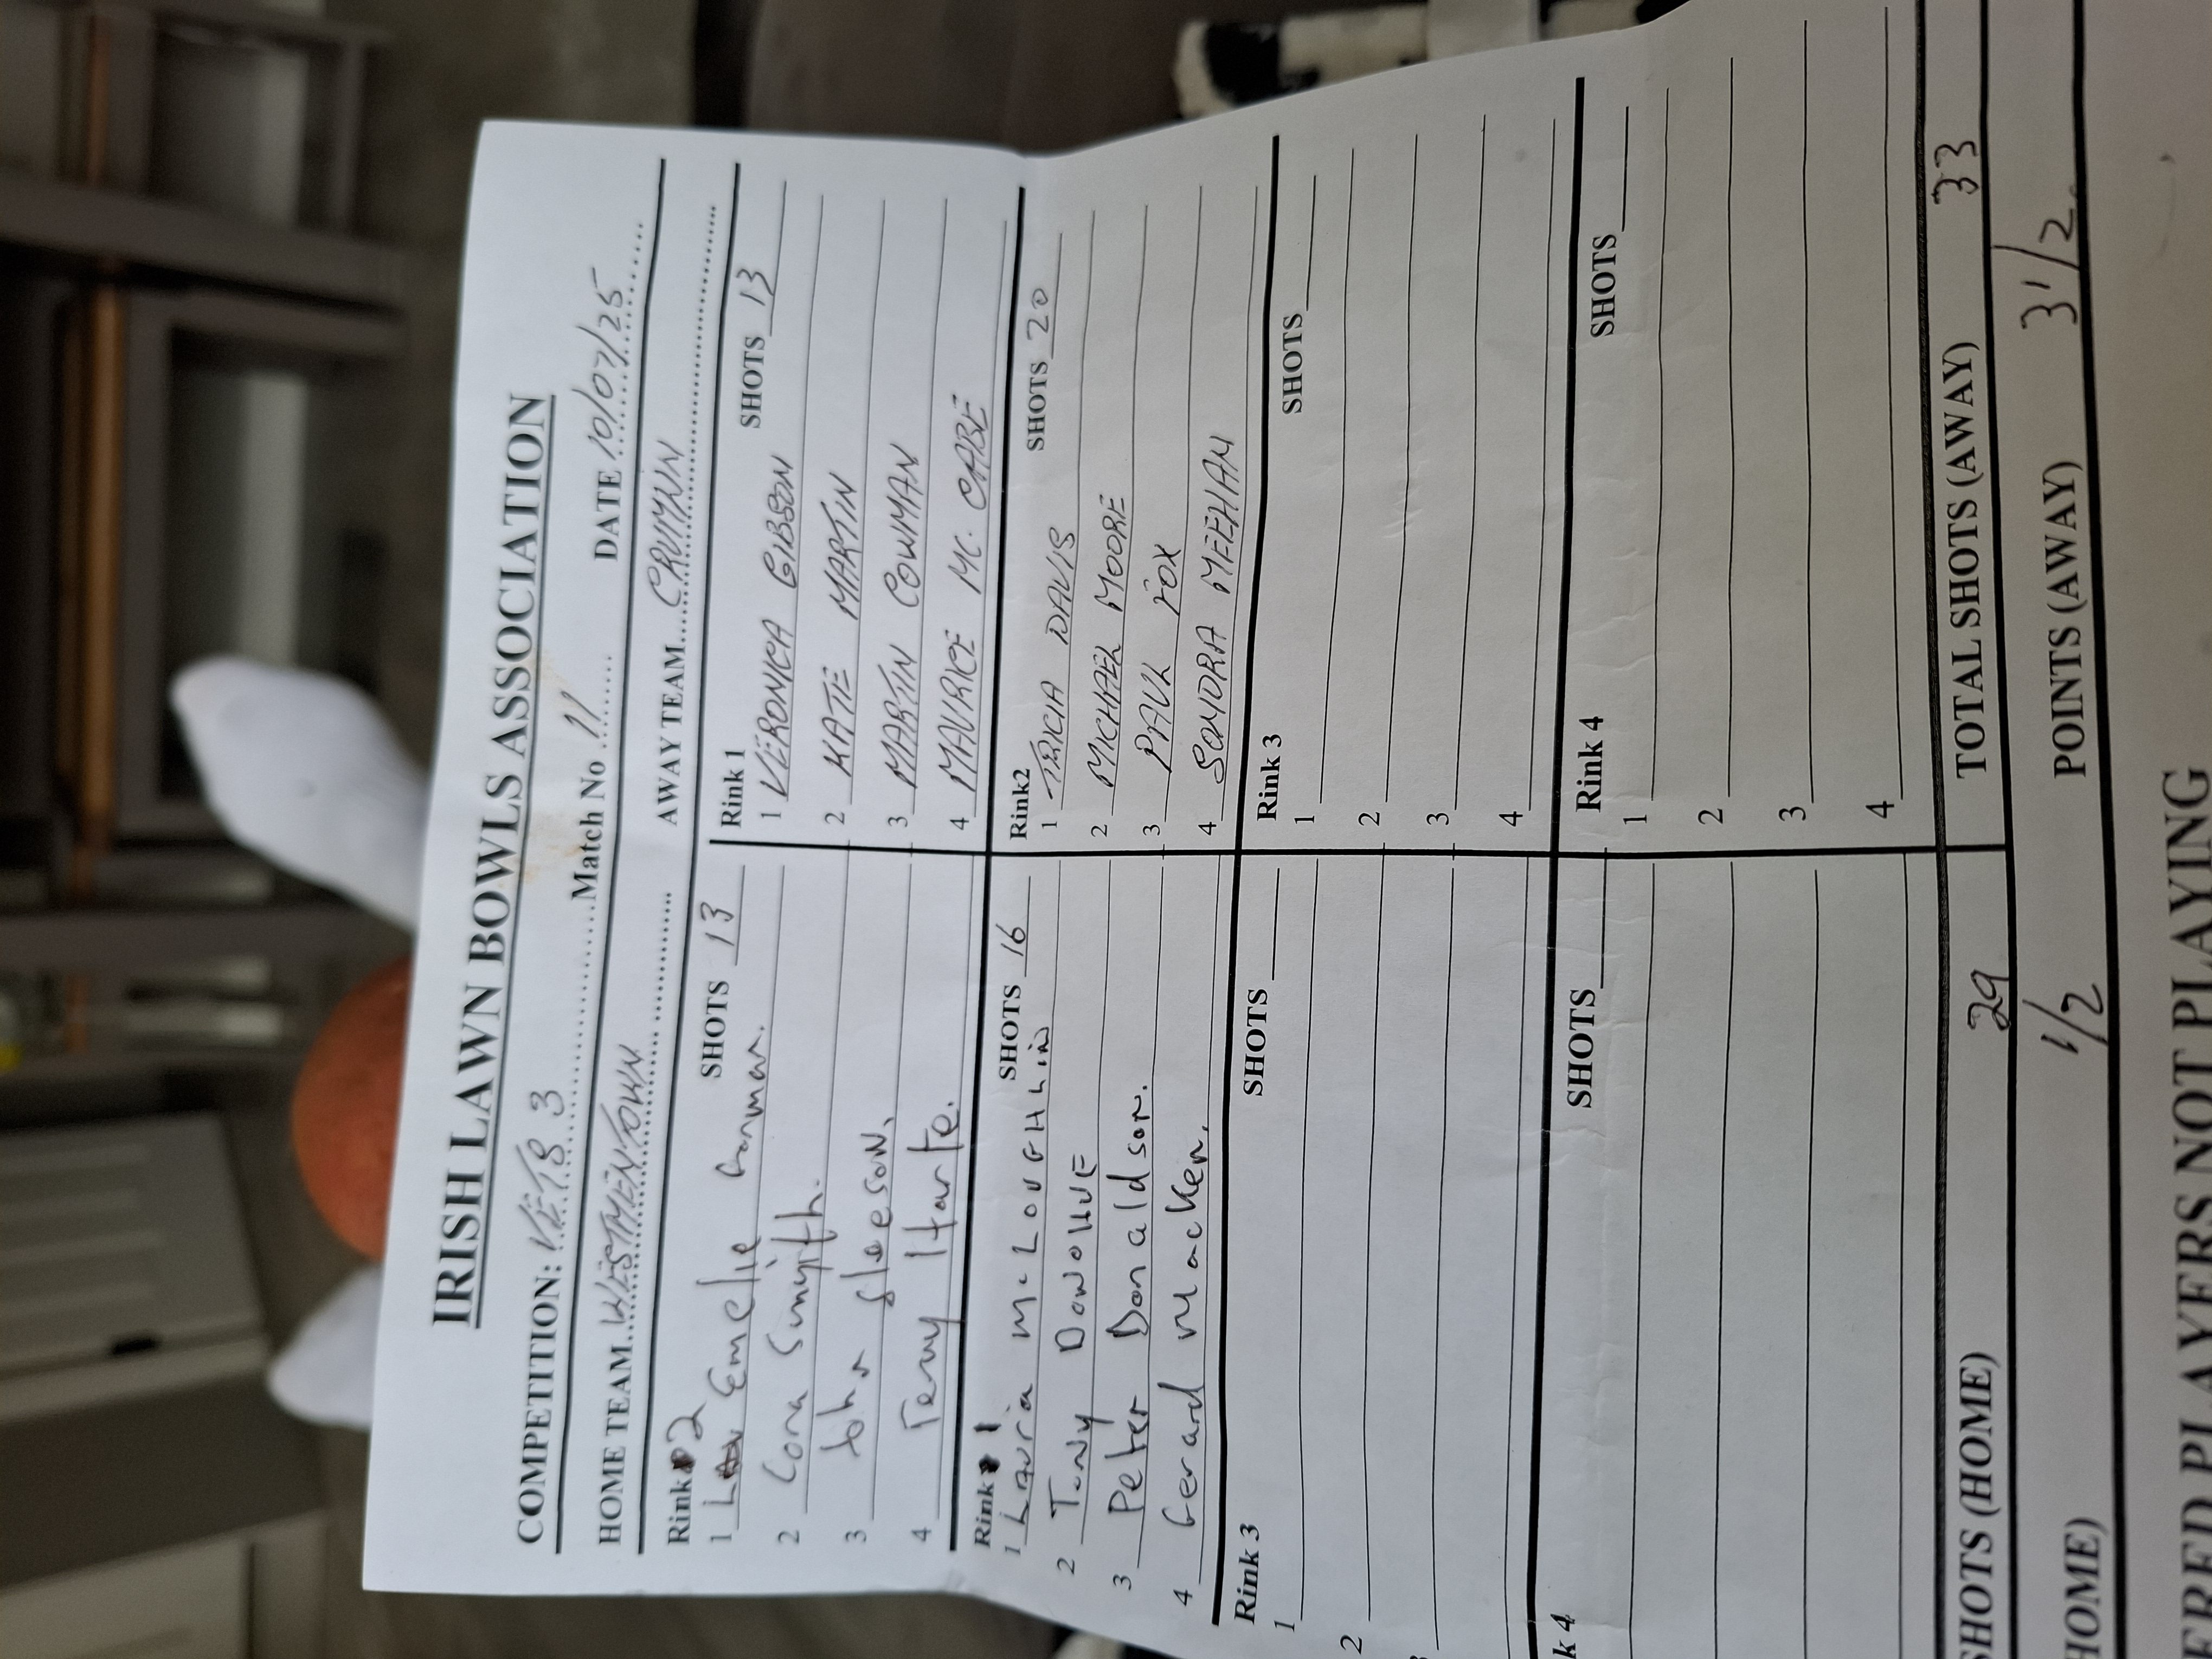 IRISH LAWN BOWLS ASSOCIATION
COMPETITION: VETS 3 Match No 11 DATE 10/07/25
HOME TEAM WESTMENTOWN AWAY TEAM CRUMLIN
Rink 2 SHOTS 13
1 Emelie
2 Cora Smyith.
3 John Gleeson.
4 Terry Harte.
Rink 1 SHOTS 16
1 Lauria McLOUGHLin
2 Tony DONOHUE
3 Peter Donaldson.
4 Gerard Macken.
Rink 3 SHOTS
1
2
k 4 SHOTS
SHOTS (HOME) 29
HOME) 1/2
Rink 1 SHOTS 13
1 VERONICA GIBSON
2 KATE MARTIN
3 MARTIN COWMAN
4 MAURICE MC. CABE
Rink2 SHOTS 20
1 TRICIA DAVIS
2 MICHAEL MOORE
3 PAUL FOX
4 SONDRA MEEHAN
Rink 3 SHOTS
1
2
3
4
Rink 4 SHOTS
1
2
3
4
TOTAL SHOTS (AWAY) 33
POINTS (AWAY) 3 1/2
ERED PLAYERS NOT PLAYING